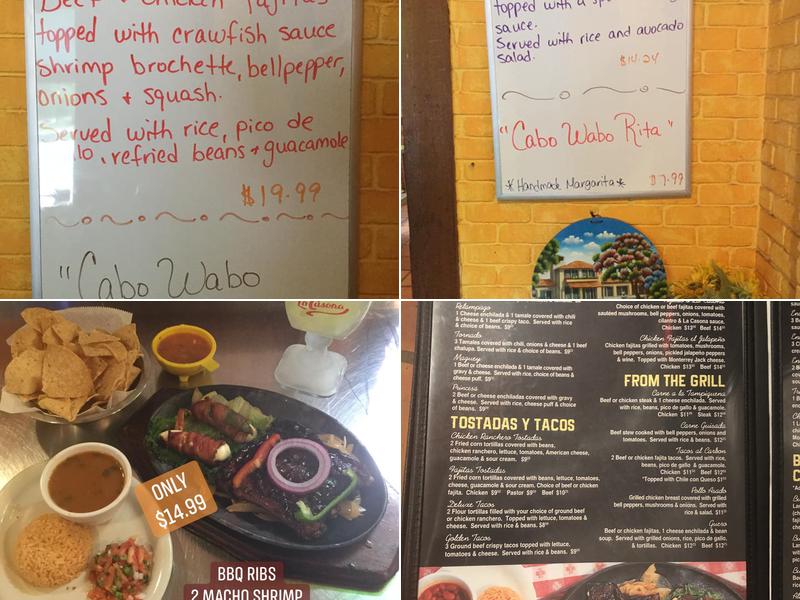 Beef + Chicken Fajitas
topped with crawfish sauce
shrimp brochette, bellpepper,
onions + squash.
Served with rice, pico de
refried beans + guacamole
$19.99
"Cabo Wabo
topped with a
sauce.
Served with rice and avocado
salad.
$14.24
"Cabo Wabo Rita"
*Handmade Margarita*
$7.99
La Casona
ONLY
$14.99
BBQ RIBS
2 MACHO SHRIMP
Relampago
1 Cheese enchilada & 1 tamale covered with chili
& cheese & 1 beef crispy taco. Served with rice
& choice of beans.
Tornado
3 Tamales covered with chili, onions & cheese & 1 beef
chalupa. Served with rice & choice of beans.
Maguey
1 Beef or cheese enchilada & 1 tamale covered with
gravy & cheese. Served with rice, choice of beans &
cheese puff.
Princess
2 Beef or cheese enchiladas covered with gravy
& cheese. Served with rice, cheese puff & choice
of beans.
TOSTADAS Y TACOS
Chicken Ranchero Tostadas
2 Fried corn tortillas covered with beans,
chicken ranchero, lettuce, tomatoes, American cheese,
guacamole & sour cream.
Fajitas Tostadas
2 Fried corn tortillas covered with beans, lettuce, tomatoes,
cheese, guacamole & sour cream. Choice of beef or chicken
fajita. Chicken Pastor Beef
Deluxe Tacos
2 Flour tortillas filled with your choice of ground beef
or chicken ranchero. Topped with lettuce, tomatoes &
cheese. Served with rice & beans.
Golden Tacos
3 Ground beef crispy tacos topped with lettuce,
tomatoes & cheese. Served with rice & beans.
Choice of chicken or beef fajitas covered with
sautéed mushrooms, bell peppers, onions, tomatoes,
cilantro & La Casona sauce.
Chicken Beef
Chicken Fajitas el Jalapeño
Chicken fajitas grilled with tomatoes, mushrooms,
bell peppers, onions, pickled jalapeno peppers
& wine. Topped with Monterrey Jack cheese.
Chicken
FROM THE GRILL
Carne a la Tampiquena
Beef or chicken steak & 1 cheese enchilada. Served
with rice, beans, pico de gallo & guacamole.
Chicken Steak
Carne Guisada
Beef stew cooked with bell peppers, onions and
tomatoes. Served with rice & beans.
Tacos al Carbon
2 Beef or chicken fajita tacos. Served with rice,
beans, pico de gallo & guacamole.
Chicken Beef
*Topped with Chile con Queso
Pollo Asado
Grilled chicken breast covered with grilled
bell peppers, mushrooms & onions. Served with
rice & salad.
Guero
Beef or chicken fajitas, 1 cheese enchilada & bean
soup. Served with grilled onions, rice, pico de gallo,
& tortillas. Chicken Beef